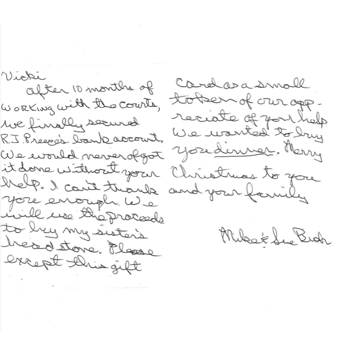 Vicki
after 10 months of
working with the courts,
we finally secured
R.J. Preece's bank account.
We would never of got
it done without your
help. I can't thank
you enough. We
will use the proceeds
to buy my sister's
head stone. Please
except this gift
card as a small
token of our app-
reciate of your help
We wanted to buy
you dinner. Merry
Christmas to you
and your family
Mike & Sue